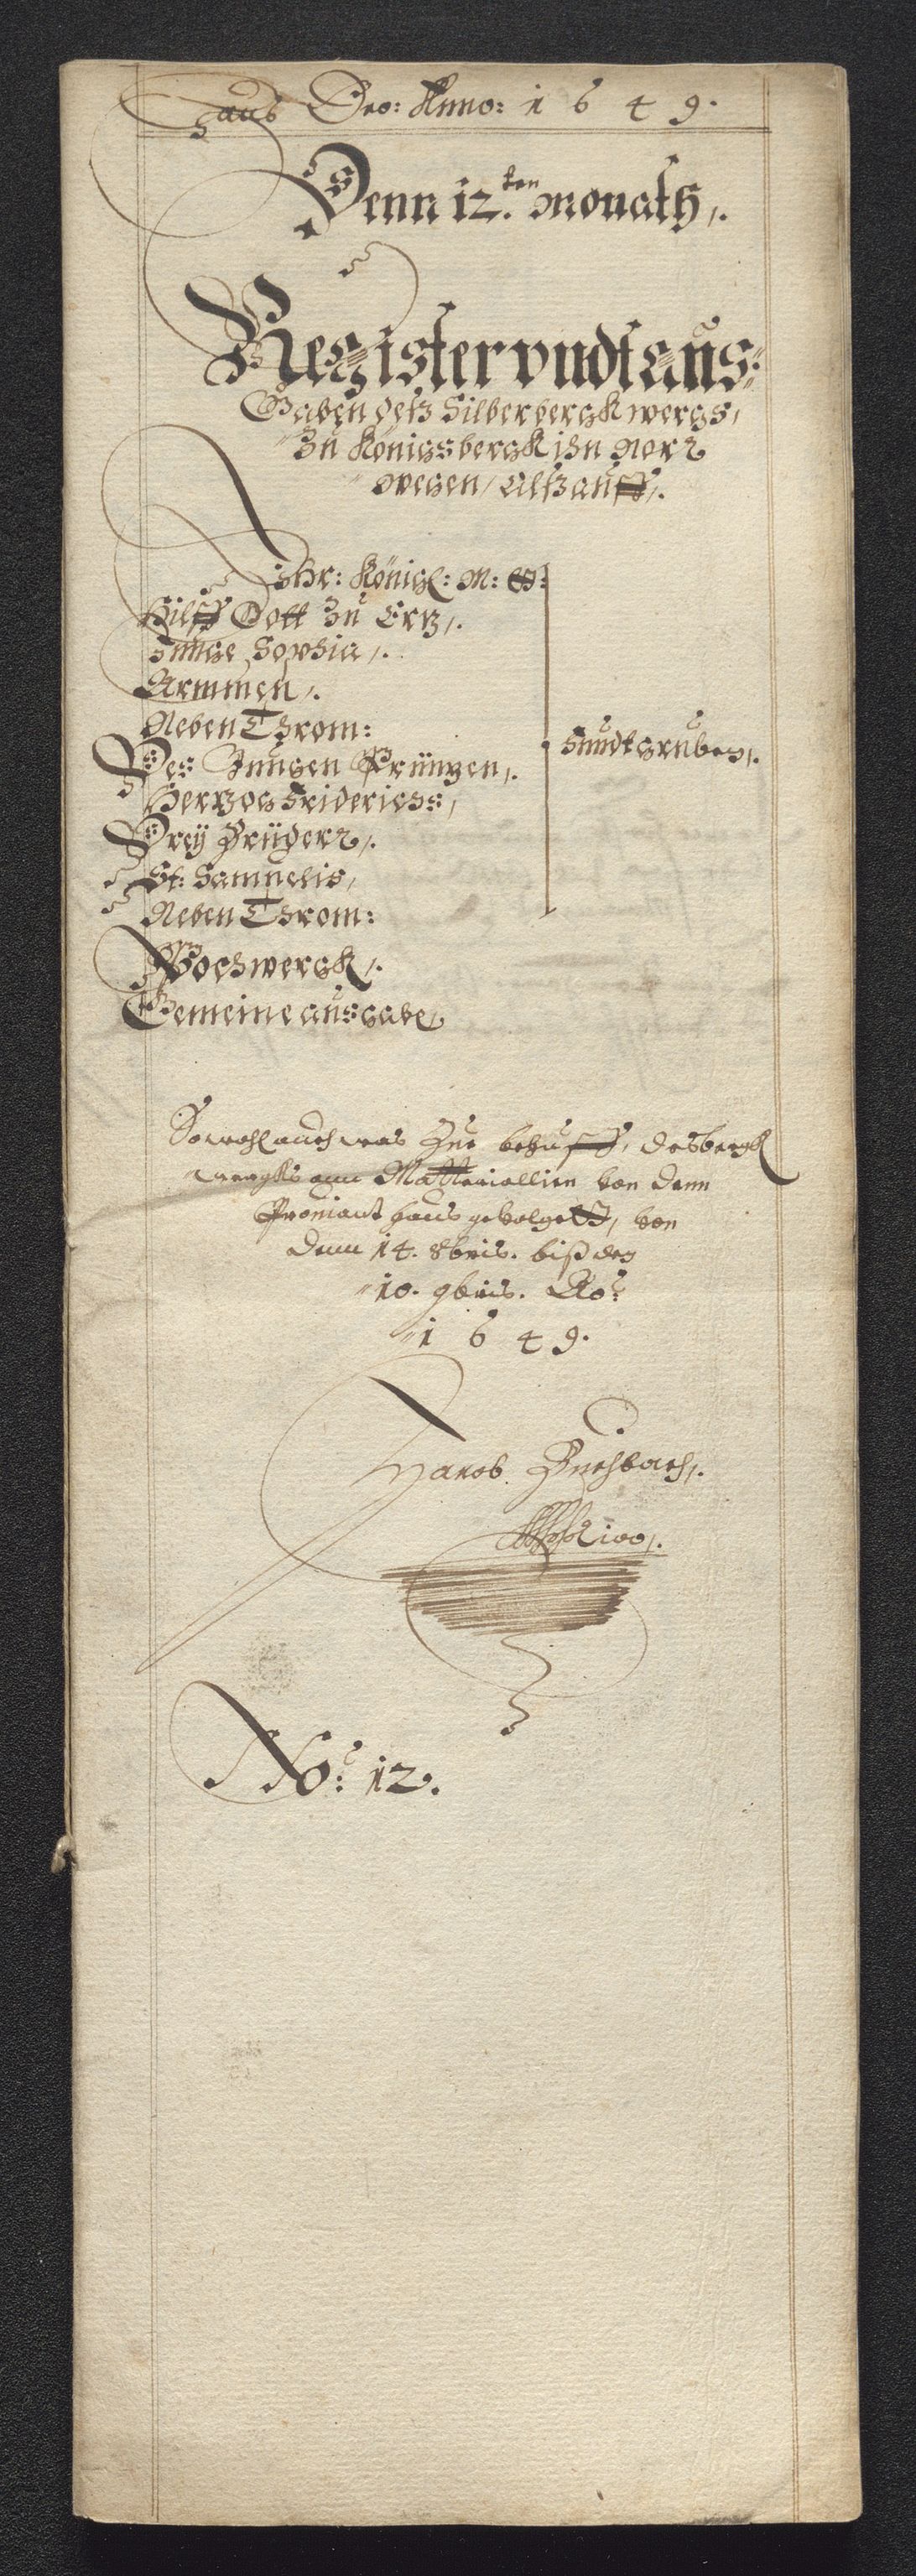 Laus Deo: Anno: 1 6 4 9.
Denn 12.ten Monath,.
Register vndt aus:
Gaben deß Silberbergkwergs,
Zu Königsbergk ihn Nor
wegen, Alß auff,.
Ihr: Königl: M: G:
Hilff Gott Zu Ertz,.
Junge Sophia,.
Armmen,.
Neben Throm:
Des Jungen Printzen,.
Hertzog Friderichs,
Drey Brüder,.
St: Samuelis,
Neben Throm:
Fundtgruben,.
Pochwergk,.
Gemeine ausgabe,
Sowohl auch was Zue behuff, des bergk
wergks ann Matteriallien von denn
Proviant haus gevolgett, von
denn 14. 8bris. biß den
10. 9bris. Ao:
1 6 4 9.
Jacob Buchbach,.
No: 12.